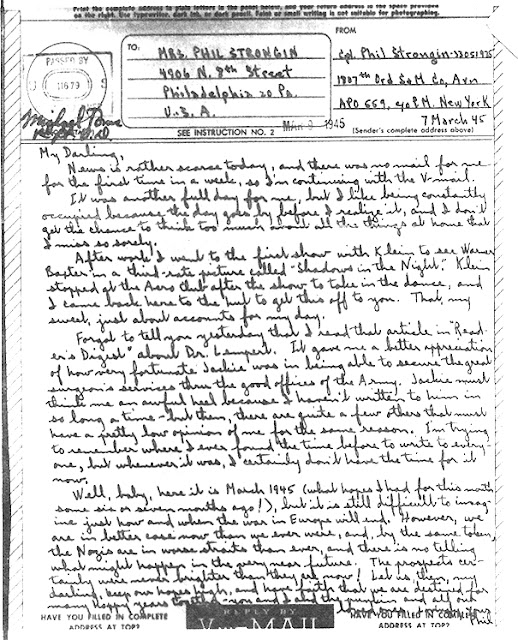 Print the complete address in plain letters in the panel below, and your return address in the space provided
on the right. Use typewriter, dark ink, or dark pencil. Faint or small writing is not suitable for photographing.
TO:
MRS. PHIL STRONGIN
4906 N. 8th Street
Philadelphia 20 Pa.
U.S.A.
FROM
Cpl. Phil Strongin-33051925
1807th Ord S&M Co, Avn
APO 559, c/o P.M. New York
7 March 45
(Sender's complete address above)
PASSED BY
SEE INSTRUCTION NO. 2
MAR 9 1945
My Darling,
News is rather scarce today, and there was no mail for me
for the first time in a week, so I'm continuing with the V-mail.
It was another full day for me, but I like being constantly
occupied because the day goes by before I realize it, and I don't
get the chance to think too much about all the things at home that
I miss so sorely.
After work I went to the first show with Klein to see Warner
Baxter in a third-rate picture called "Shadows in the Night". Klein
stopped at the Aero club after the show to take in the dance, and
I came back here to the hut to get this off to you. That, my
sweet, just about accounts for my day.
Forgot to tell you yesterday that I read that article in "Read-
er's Digest" about Dr. Lempert. It gave me a better appreciation
of how very fortunate Jackie was in being able to secure the great
surgeon's services thru the good offices of the Army. Jackie must
think me an awful heel because I haven't written to him in
so long a time - but then, there are quite a few others that must
have a pretty low opinion of me for the same reason. I'm trying
to remember where I ever found the time before to write to every-
one, but whenever it was, I certainly don't have the time for it
now.
Well, baby, here it is March 1945 (what hopes I had for this month
some six or seven months ago!), but it is still difficult to imag-
ine just how and when the war in Europe will end. However, we
are in better case now than we ever were, and, by the same token,
the Nazis are in worse straits than ever, and there is no telling
what might happen in the very near future. The prospects cer-
tainly were never brighter than they are now! Let us then, my
darling, keep our hopes high, and our faith that we are destined for
many happy years together
Phil
HAVE YOU FILLED IN COMPLETE
ADDRESS AT TOP?
REPLY BY
V···—MAIL
HAVE YOU FILLED IN COMPLETE
ADDRESS AT TOP?